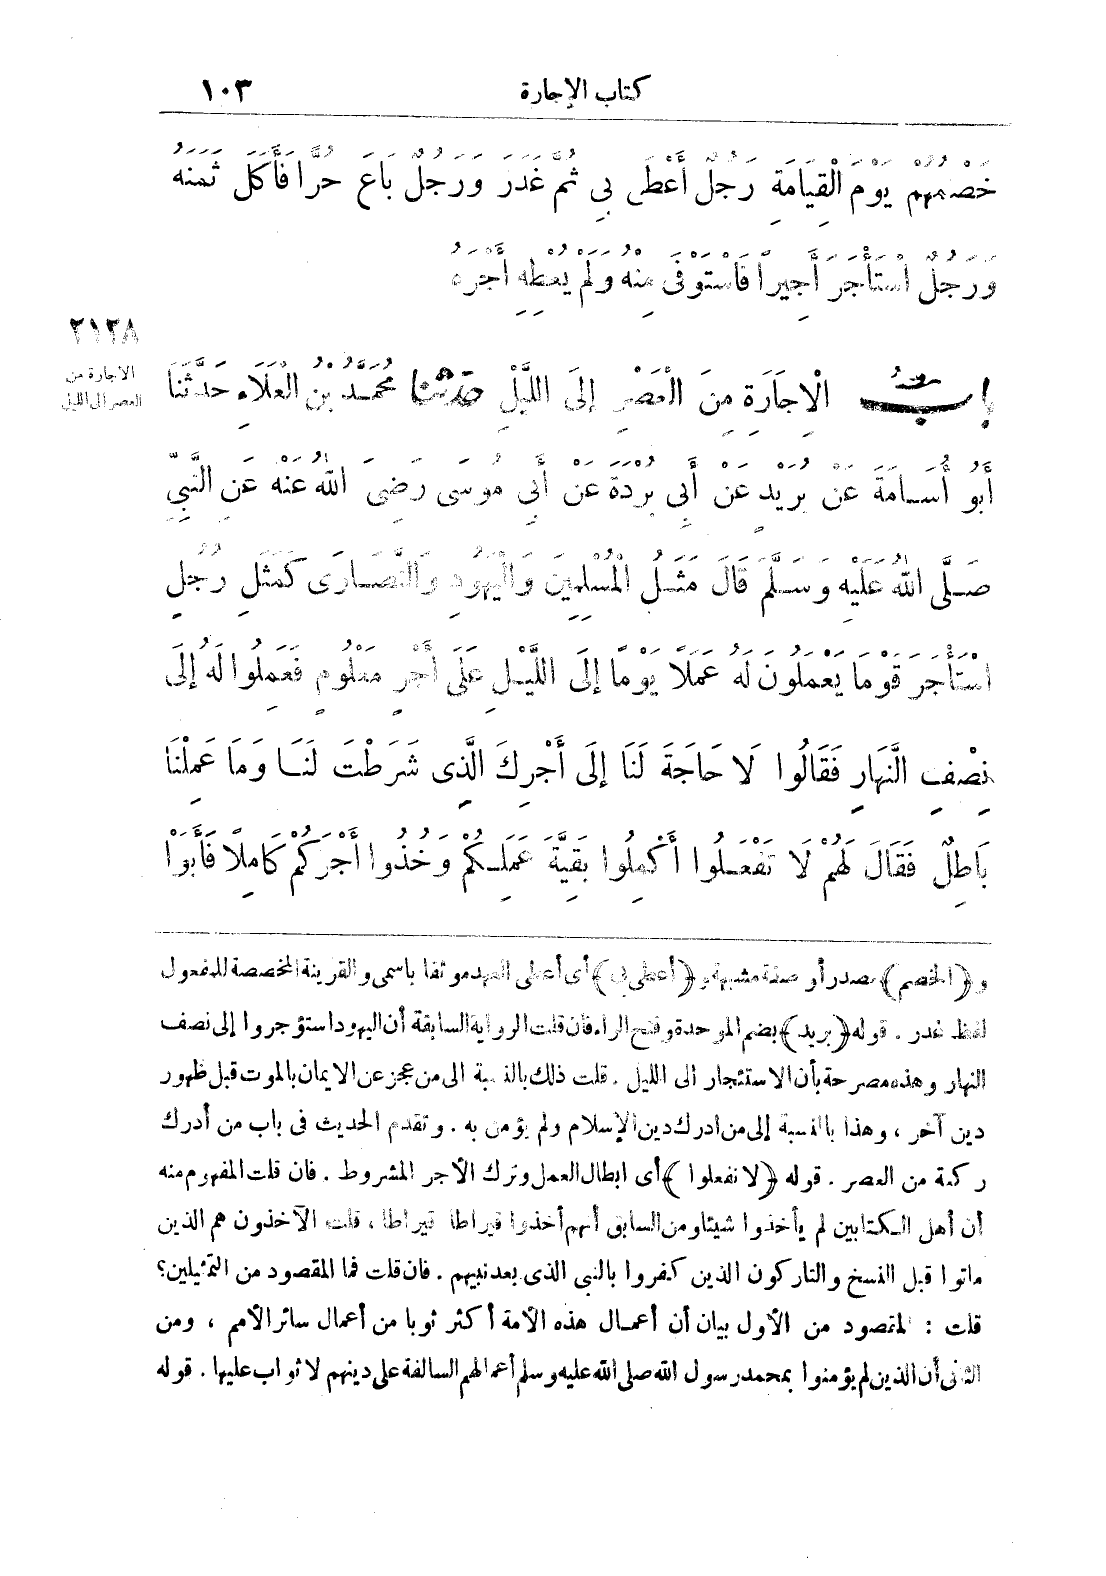 كتاب الإجارة ١٠٣
خَصْمُهُمْ يَوْمَ الْقِيَامَةِ رَجُلٌ أَعْطَى بِي ثُمَّ غَدَرَ وَرَجُلٌ بَاعَ حُرًّا فَأَكَلَ ثَمَنَهُ
وَرَجُلٌ اسْتَأْجَرَ أَجِيرًا فَاسْتَوْفَى مِنْهُ وَلَمْ يُعْطِهِ أَجْرَهُ
٢١٢٨
الاجارة من
العصر الى الليل
بابُ الْإِجَارَةِ مِنَ الْعَصْرِ إِلَى اللَّيْلِ حدثنا مُحَمَّدُ بْنُ الْعَلَاءِ حَدَّثَنَا
أَبُو أُسَامَةَ عَنْ بُرَيْدٍ عَنْ أَبِي بُرْدَةَ عَنْ أَبِي مُوسَى رَضِيَ اللهُ عَنْهُ عَنِ النَّبِيِّ
صَلَّى اللهُ عَلَيْهِ وَسَلَّمَ قَالَ مَثَلُ الْمُسْلِمِينَ وَالْيَهُودِ وَالنَّصَارَى كَمَثَلِ رَجُلٍ
اسْتَأْجَرَ قَوْمًا يَعْمَلُونَ لَهُ عَمَلًا يَوْمًا إِلَى اللَّيْلِ عَلَى أَجْرٍ مَعْلُومٍ فَعَمِلُوا لَهُ إِلَى
نِصْفِ النَّهَارِ فَقَالُوا لَا حَاجَةَ لَنَا إِلَى أَجْرِكَ الَّذِي شَرَطْتَ لَنَا وَمَا عَمِلْنَا
بَاطِلٌ فَقَالَ لَهُمْ لَا تَفْعَلُوا أَكْمِلُوا بَقِيَّةَ عَمَلِكُمْ وَخُذُوا أَجْرَكُمْ كَامِلًا فَأَبَوْا
و﴿الخصم﴾ مصدر أو صفة مشبهة و﴿أعطى بى﴾ أى أعطى العهد موثقا باسمى والقرينة المخصصة للمفعول
لفظ غدر . قوله ﴿بريد﴾ بضم الموحدة وفتح الراء فان قلت الرواية السابقة أن اليهود استؤجروا إلى نصف
النهار وهذه مصرحة بأن الاستئجار الى الليل . قلت ذلك بالنسبة الى من عجز عن الايمان بالموت قبل ظهور
دين آخر ، وهذا بالنسبة إلى من ادرك دين الإسلام ولم يؤمن به . وتقدم الحديث فى باب من أدرك
ركعة من العصر . قوله ﴿لا تفعلوا﴾ أى ابطال العمل وترك الأجر المشروط . فان قلت المفهوم منه
أن أهل الكتابين لم يأخذوا شيئا ومن السابق أنهم أخذوا قيراطا قيراطا ، قلت الآخذون هم الذين
ماتوا قبل النسخ والتاركون الذين كفروا بالنبى الذى بعد نبيهم . فان قلت فما المقصود من التمثيلين؟
قلت : المقصود من الأول بيان أن أعمال هذه الأمة أكثر ثوبا من أعمال سائر الأمم ، ومن
الثانى أن الذين لم يؤمنوا بمحمد رسول الله صلى الله عليه وسلم أعمالهم السالفة على دينهم لا ثواب عليها . قوله